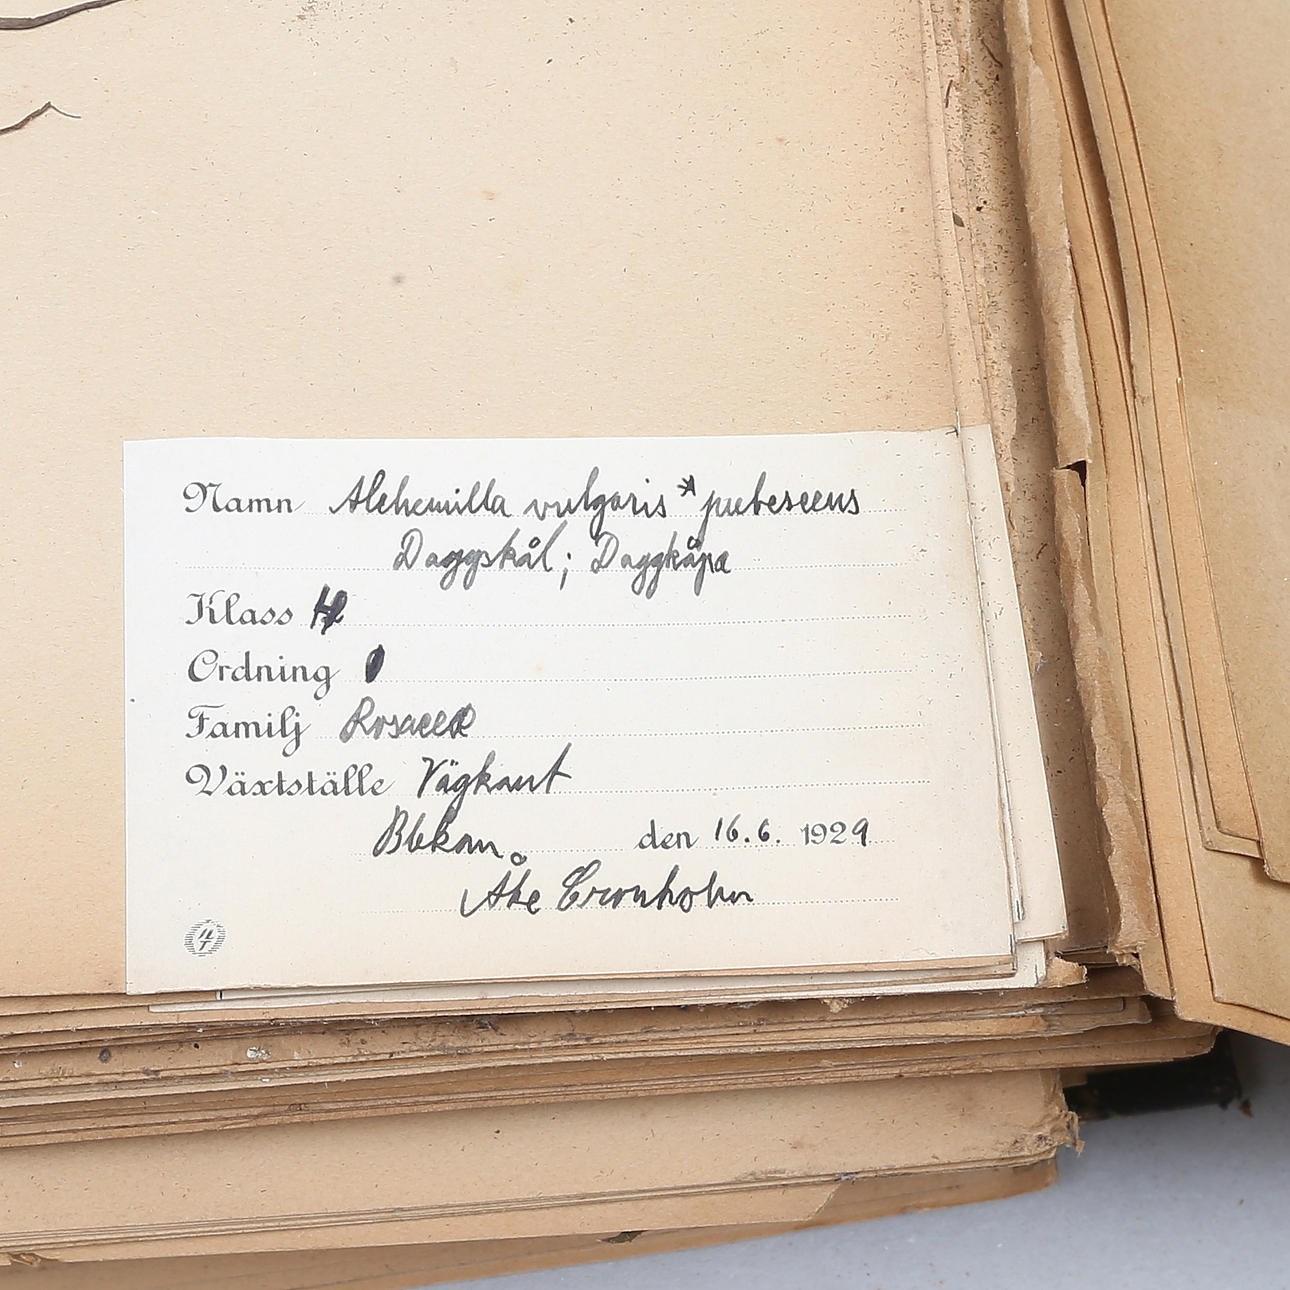 Namn Alchemilla vulgaris * pubescens
Daggskål; Daggkåpa
Klass 4
Ordning 1
Familj Rosaceæ
Växtställe Vägkant
den 16.6. 1929
Åke Cronholm